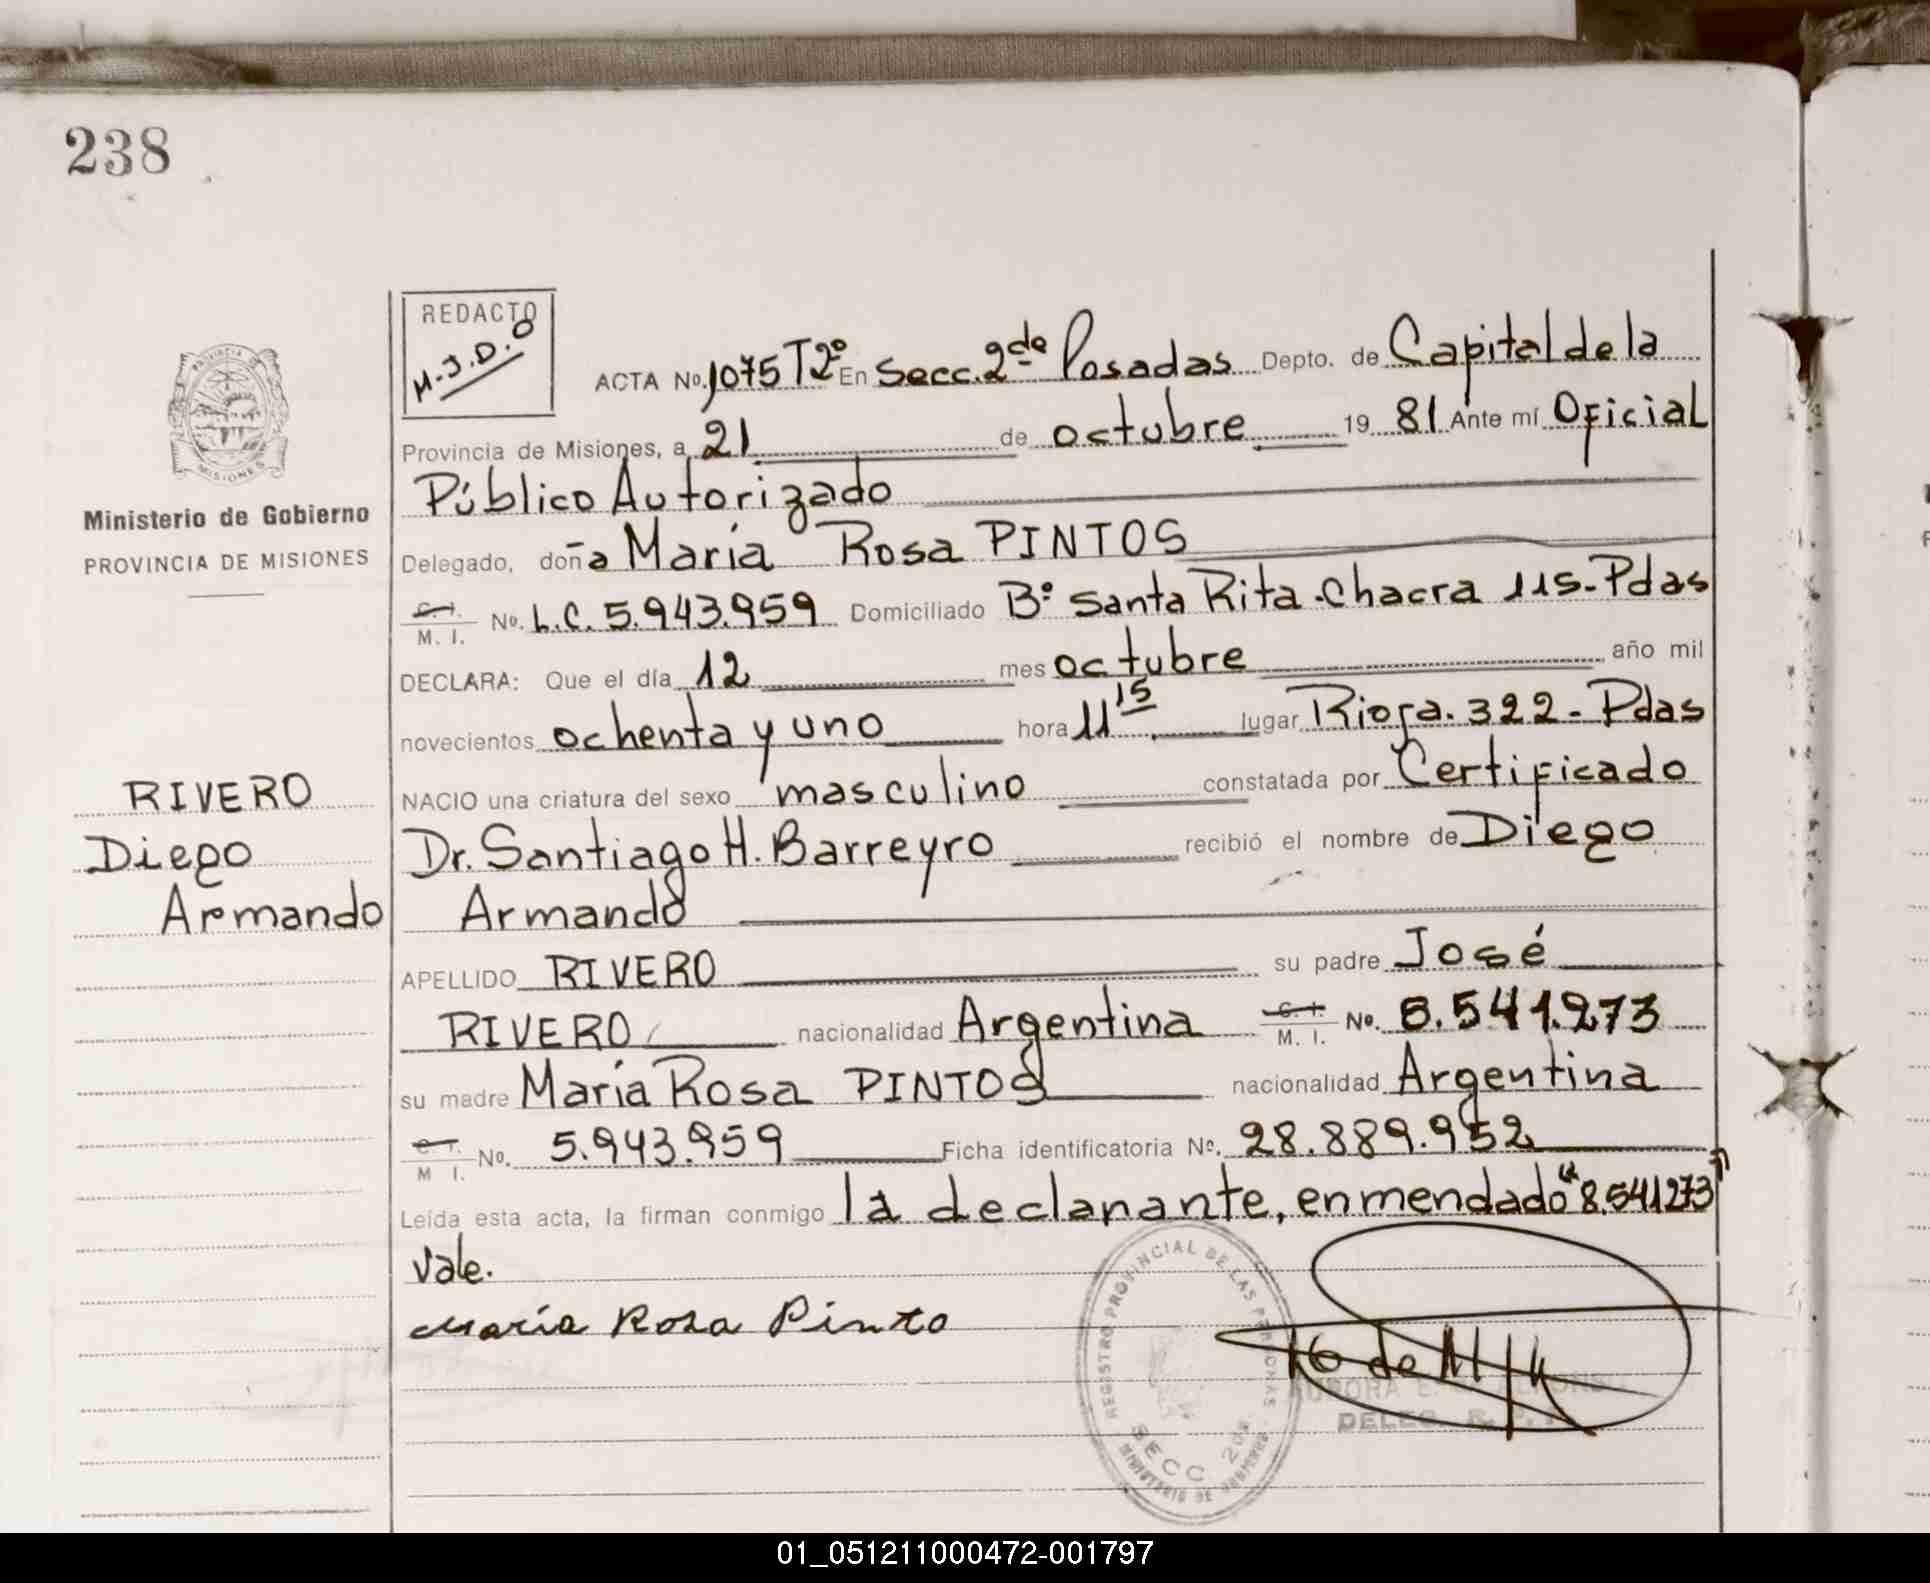 238
REDACTO
M.J.D.O
ACTA No. 1075 T2º En Secc. 2da Posadas Depto. de Capital de la
Provincia de Misiones, a 21 de octubre 19 81 Ante mí Oficial
Público Autorizado
Ministerio de Gobierno
PROVINCIA DE MISIONES
Delegado, doña María Rosa PINTOS
C. I. / M. I. No. L.C. 5.943.959 Domiciliado Bº Santa Rita - Chacra 115 - Pdas
DECLARA: Que el día 12 mes octubre año mil
novecientos ochenta y uno hora 11 15 lugar Rioja. 322 - Pdas
NACIO una criatura del sexo masculino constatada por Certificado
Dr. Santiago H. Barreyro recibió el nombre de Diego
Armando
RIVERO
Diego
Armando
APELLIDO RIVERO su padre José
RIVERO nacionalidad Argentina C. I. / M. I. No. 8.541.273
su madre María Rosa PINTOS nacionalidad Argentina
C. I. / M. I. No. 5.943.959 Ficha identificatoria No. 28.889.952
Leída esta acta, la firman conmigo la declarante, enmendado "8.541273"
Vale.
María Rosa Pinto
REGISTRO PROVINCIAL DE LAS PERSONAS
SECC 2da
MINISTERIO DE GOBIERNO
DELEG. R. P.
01_051211000472-001797